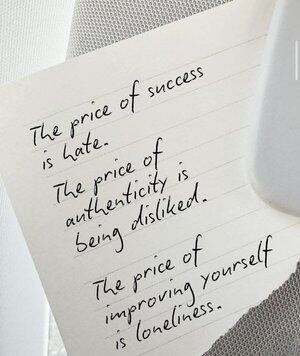 The price of success
is hate.
The price of
authenticity is
being disliked.
The price of
improving yourself
is loneliness.